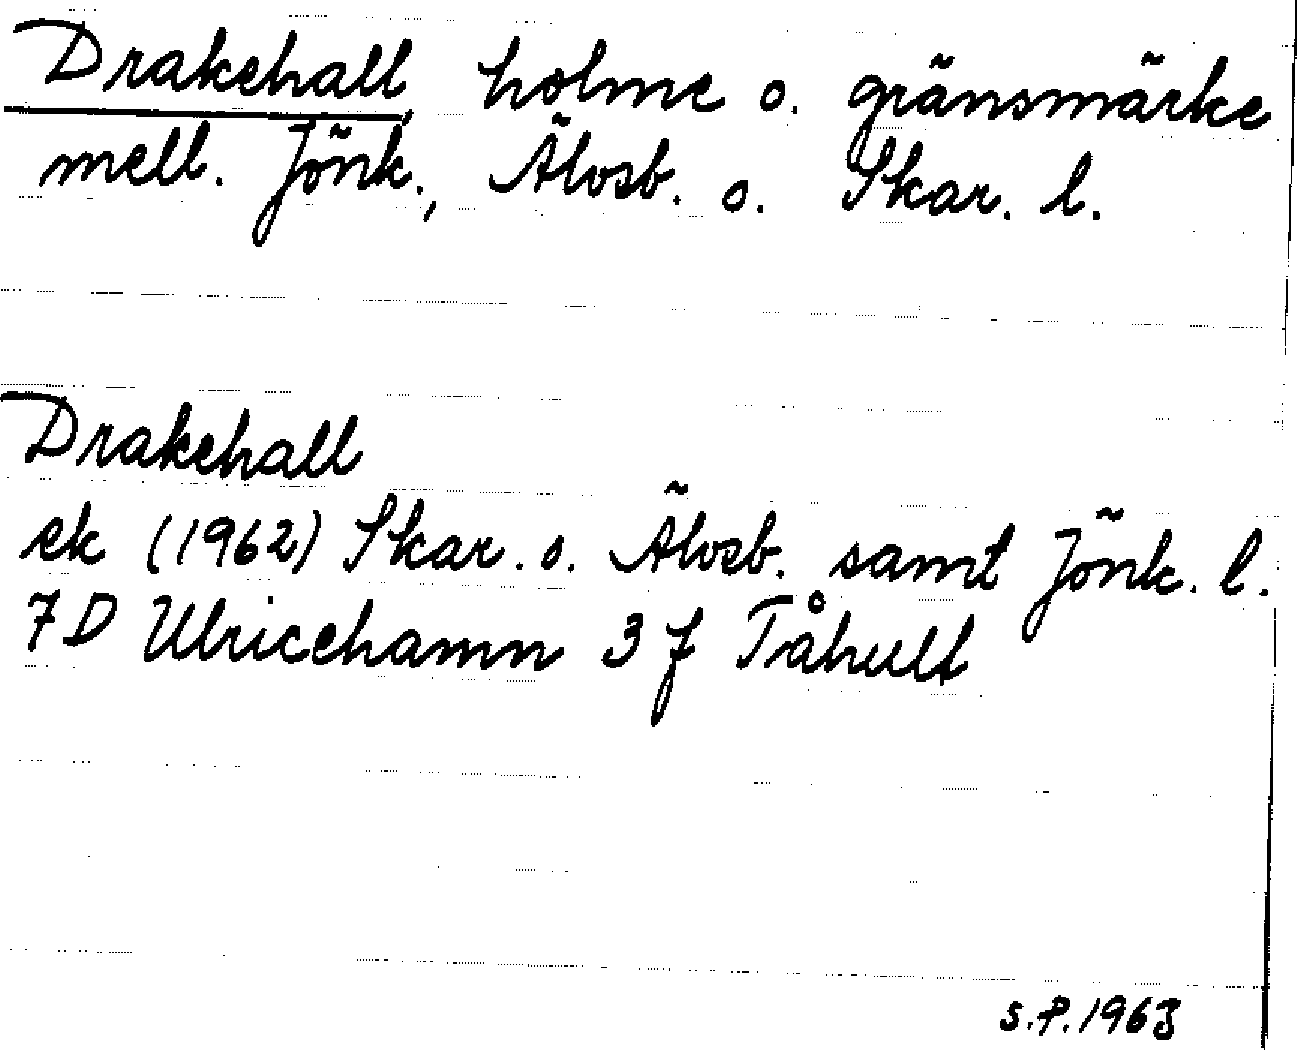 Drakehall, holme o. gränsmärke
mell. Jönk., Älvsb. o. Skar. l.
Drakehall
ek (1962) Skar. o. Älvsb. samt Jönk. l.
7D Ulricehamn 3 f Tåhult
S.P. 1963